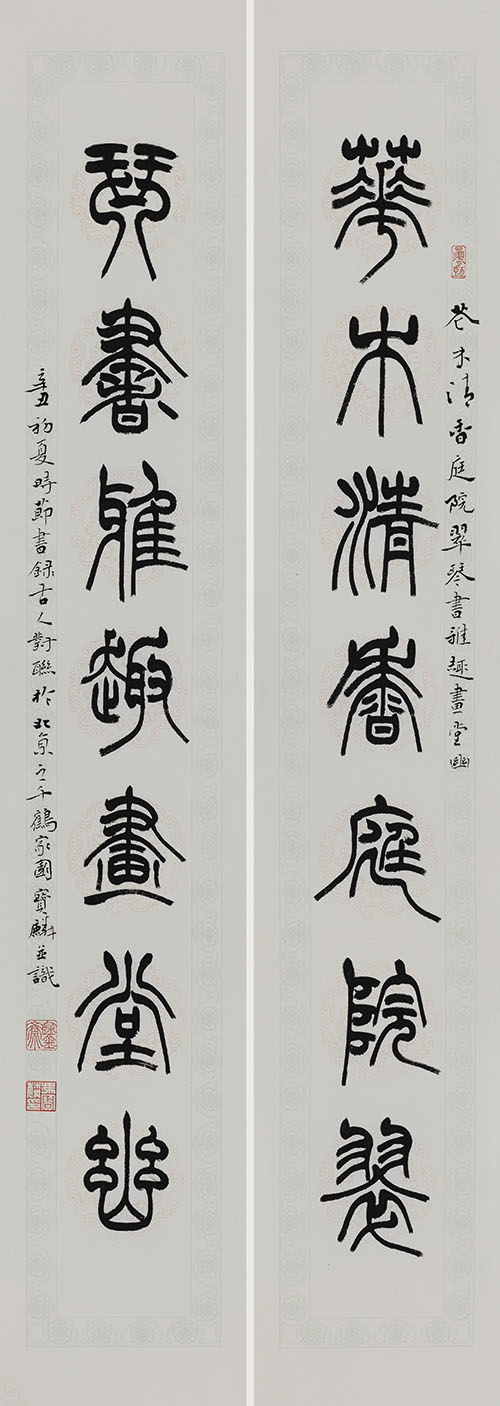 華木清香庭院翠
花木清香庭院翠琴書雅趣畫堂幽
琴書雅趣畫堂幽
辛丑初夏時節書録古人對聯於北京之千鶴家園寶麟並識